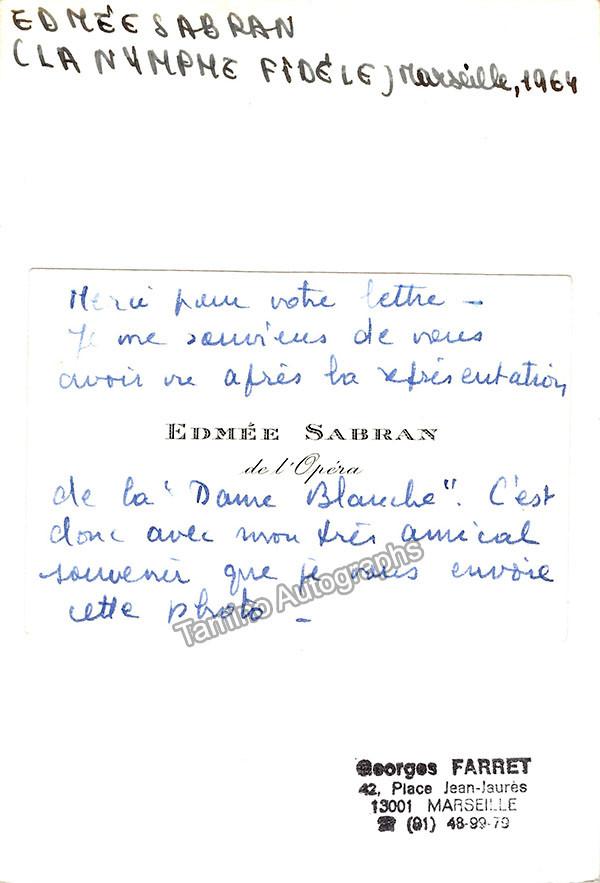 EDMÉE SABRAN
(LA NYMPHE FIDÈLE) Marseille, 1964
Merci pour votre lettre –
Je me souviens de vous
avoir vu après la représentation
EDMÉE SABRAN
de l'Opéra
de la "Dame Blanche". C'est
donc avec mon très amical
souvenir que je vous envoie
cette photo –
Tamino Autographs
Georges FARRET
42, Place Jean-Jaurès
13001 MARSEILLE
☎ (91) 48-99-79